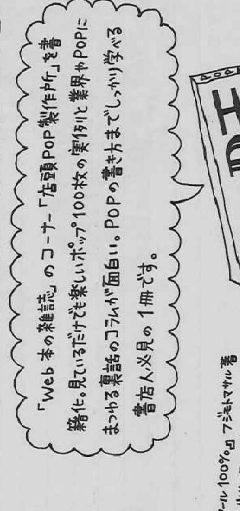 「Web本の雑誌」のコーナー「店頭POP製作所」を書
籍化。見ているだけでも楽しいポップ100枚の実例と業界やPOPに
まつわる裏話のコラムが面白い。POPの書き方までしっかり学べる
書店人必見の1冊です。
POP
ール100%』フジモトマサル著